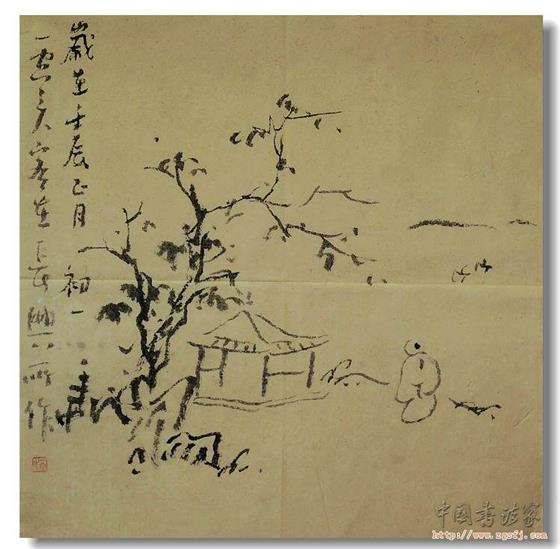 歲在壬辰正月初一
在長興所作
中国书法家
http://www.zgsfj.com